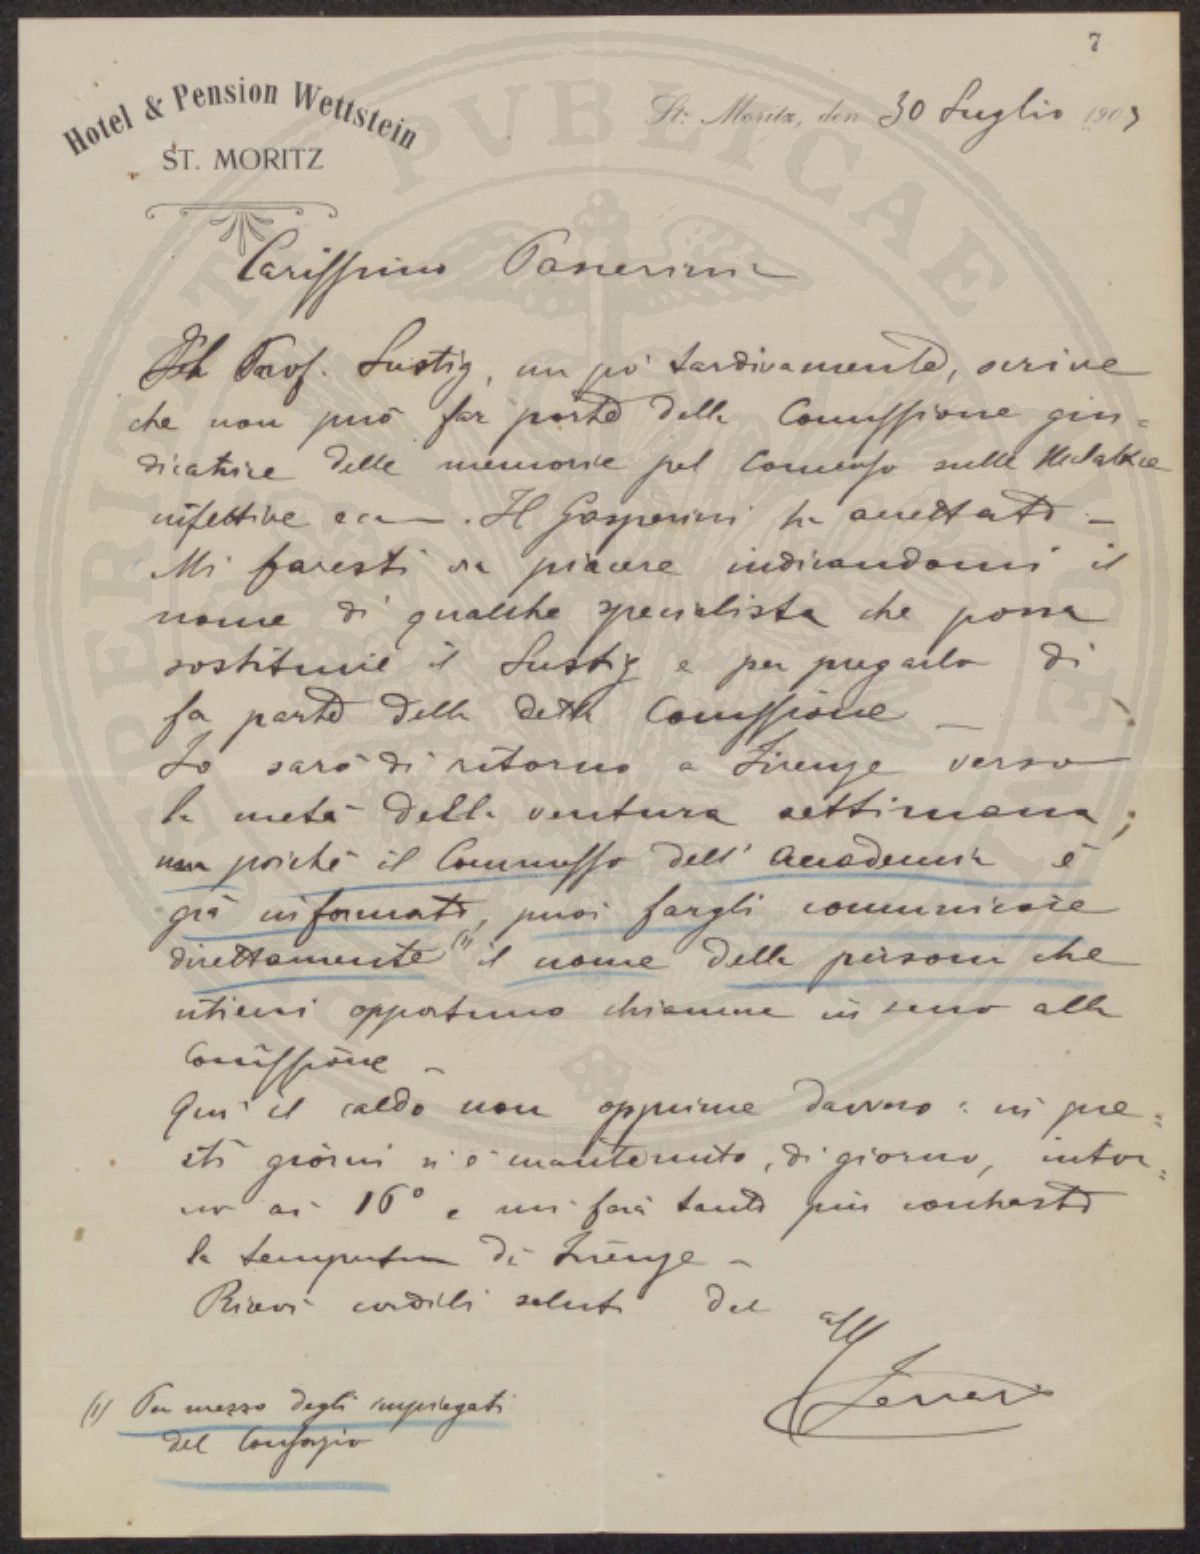 7
Hotel & Pension Wettstein
ST. MORITZ
St. Moritz, den 30 Luglio 1903
Carissimo
Il Prof. Lustig, un po' tardivamente, scrive
che non può far parte della Commissione giu=
dicatrice delle memorie pel Concorso sulle Malattie
infettive ecc —. Il Gasperini ha accettato —
Mi faresti un piacere indicandomi il
nome di qualche specialista che possa
sostituire il Lustig e per pregarlo di
fa parte della detta Comissione —
Io sarò di ritorno a Firenze verso
la metà della ventura settimana;
ma poichè il Commesso dell'Accademia è
già informato, puoi fargli comunicare
direttamente (1) il nome della persona che
ritieni opportuno chiamare in seno alla
Comissione —
Qui il caldo non opprime davvero: in que=
sti giorni si è mantenuto, di giorno, intor=
no ai 16° e mi farà tanto più contrasto
la temperatura di Firenze —
Ricevi cordiali saluti del
aff
(1) Per mezzo degli impiegati
del Consorzio
PVBLICAE